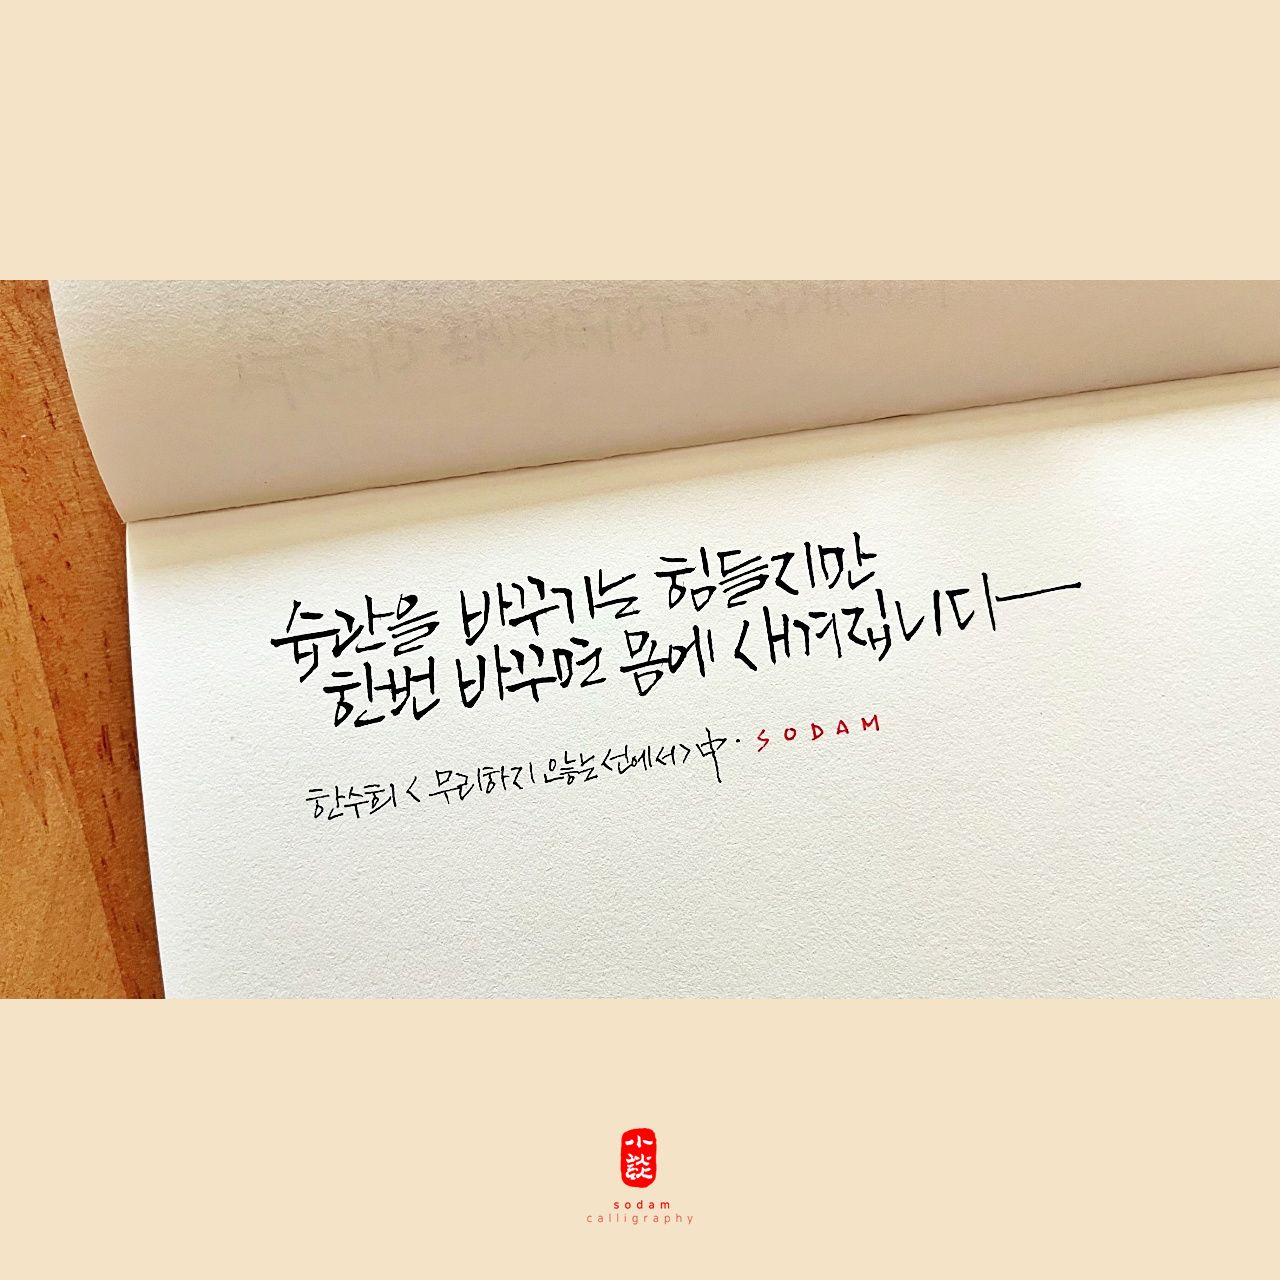 습관을 바꾸기는 힘들지만
한번 바꾸면 몸에 새겨집니다
한수희 <무리하지 않는 선에서> 中 · SODAM
小談
sodam
calligraphy